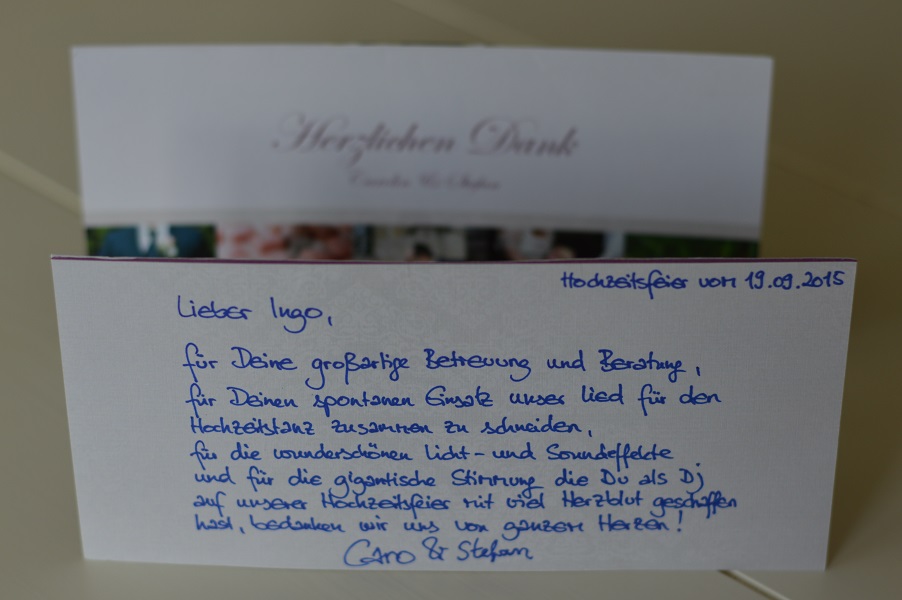 Herzlichen Dank
& Stefan
Hochzeitsfeier vom 19.09.2015
Lieber Ingo,
für Deine großartige Betreuung und Beratung,
für Deinen spontanen Einsatz unser Lied für den
Hochzeitstanz zusammen zu schneiden,
für die wunderschönen Licht- und Soundeffekte
und für die gigantische Stimmung die Du als Dj
auf unserer Hochzeitsfeier mit viel Herzblut geschaffen
hast, bedanken wir uns von ganzem Herzen!
Caro & Stefan